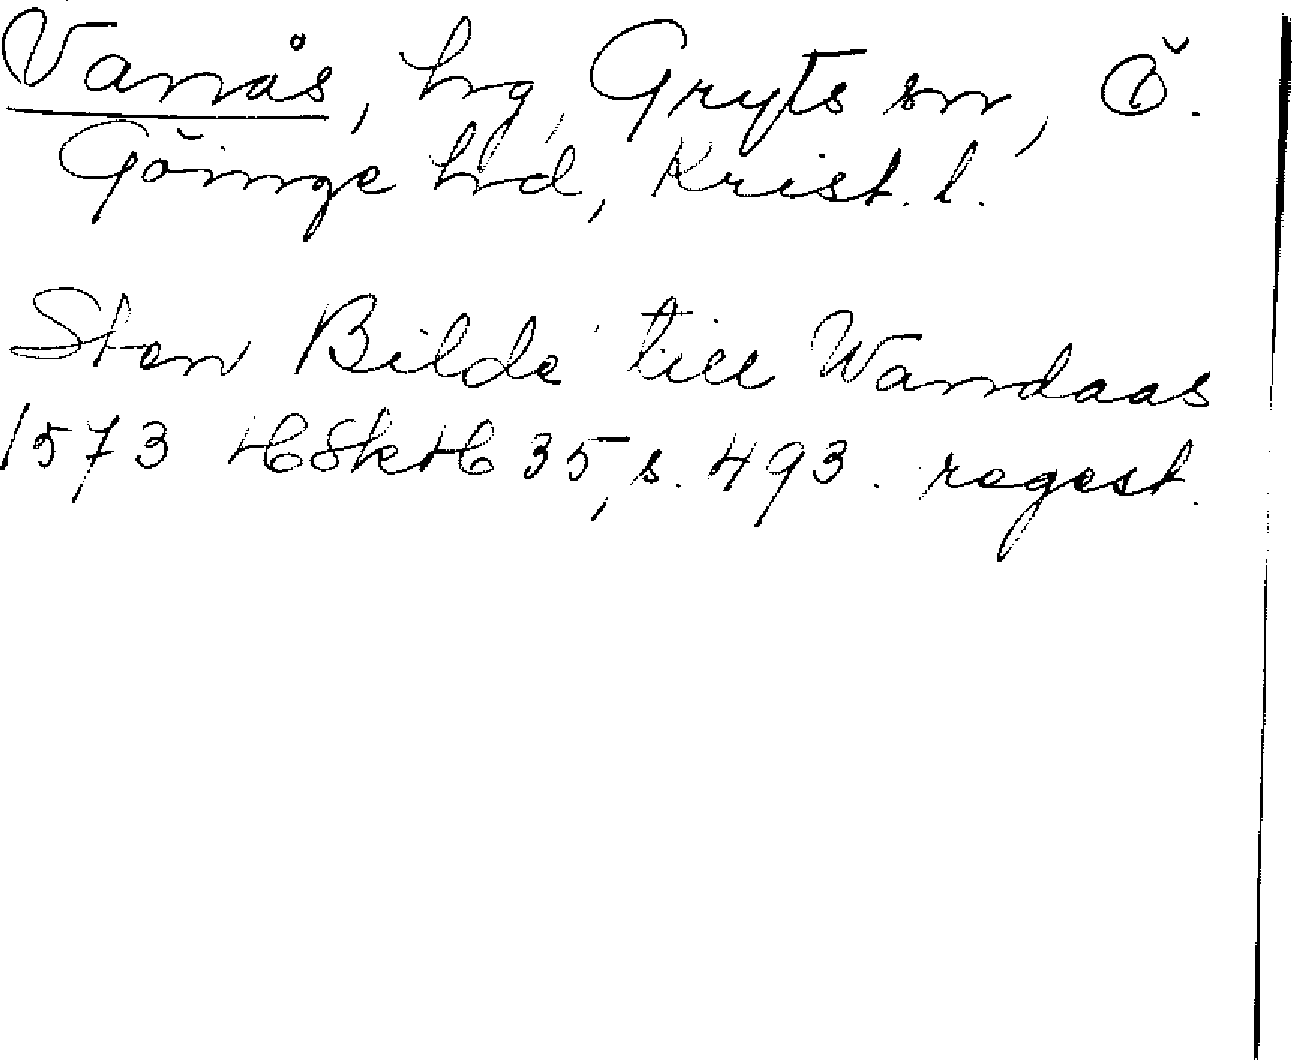 Vanås, hg, Gryts sn, Ö.
Göinge hrd, Krist. l.
Sten Bilde till Wandaas
1573 HSkH 35, s. 493. regest.